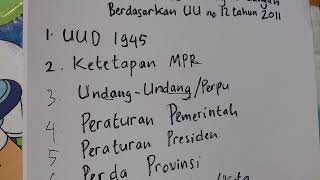 Berdasarkan UU no 12 tahun 2011
1. UUD 1945
2. Ketetapan MPR
3 Undang-Undang/Perpu
4 Peraturan Pemerintah
5 Peraturan Presiden
6 Perda Provinsi